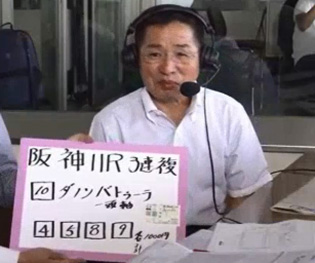 阪神11R 3連複
10 ダノンバトゥーラ
一頭軸
4 5 8 9 各1000円